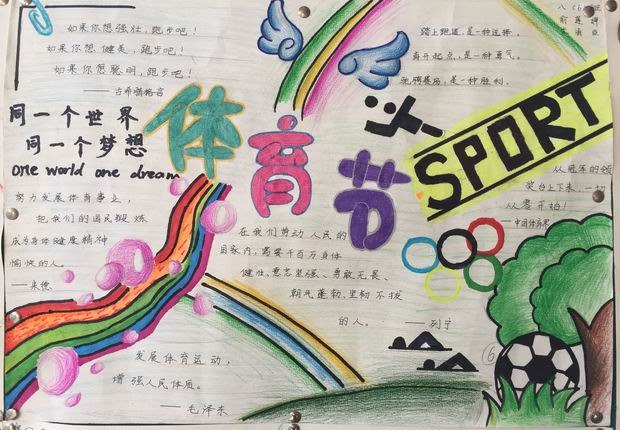 如果你想强壮,跑步吧!
如果你想健美,跑步吧!
如果你想聪明,跑步吧!
——古希腊格言
踏上跑道,是一种选择,
离开起点,是一种勇气。
驰骋赛场,是一种胜利。
八(6)班
同一个世界
同一个梦想
one world one dream
体育节
SPORT
努力发展体育事业,
把我们的国民锻炼
成为身体健康精神
愉快的人。
——朱德
在我们劳动人民的
国家内,需要千百万身体
健壮、意志坚强、勇敢无畏、
朝气蓬勃、坚韧不拔
的人。 ——列宁
从冠军的领
奖台上下来,一切
从零开始!
——中国体育界
发展体育运动,
增强人民体质。
——毛泽东
6